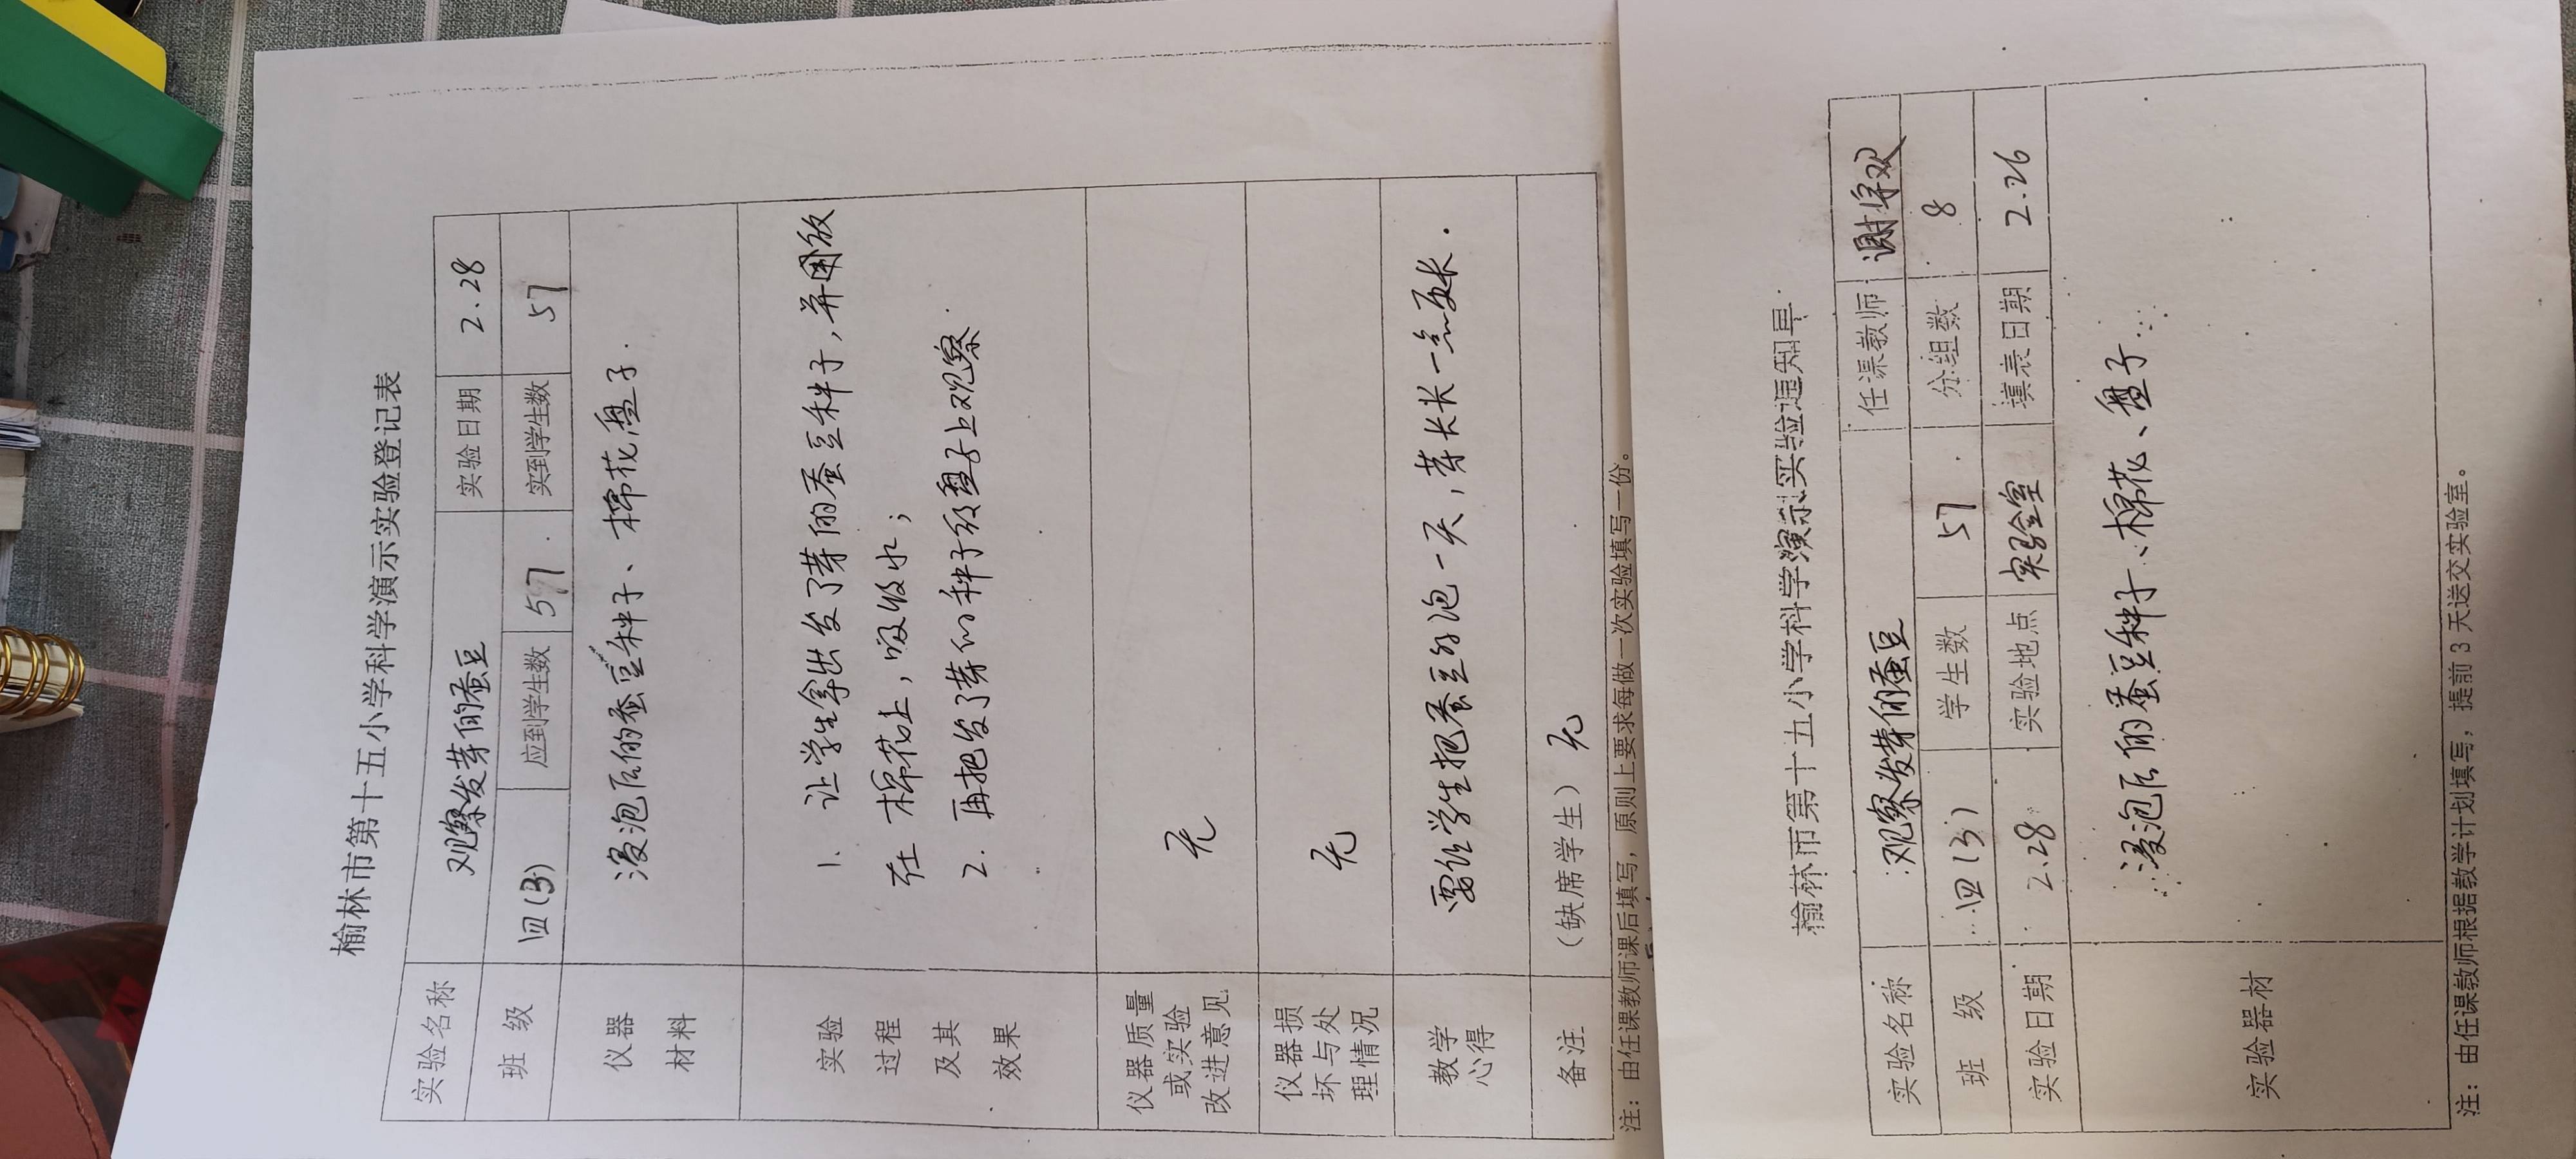 榆林市第十五小学科学演示实验登记表
实验名称 观察发芽的蚕豆 实验日期 2.28
班 级 四(3) 应到学生数 57 实到学生数 57
仪器 浸泡后的蚕豆种子、棉花盘子.
材料
实验 1. 让学生拿出发了芽的蚕豆种子,并用放
过程 在棉花上,吸收水;
及其 2. 再把发了芽的种子放盘子上观察.
效果
仪器质量
或实验 无
改进意见
仪器损
坏与处 无
理情况
教学 要让学生把蚕豆多泡一天,芽长长一点再长.
心得
备注 (缺席学生) 无
注:由任课教师课后填写,原则上要求每做一次实验填写一份。
榆林市第十五小学科学演示实验通知单
实验名称 观察发芽的蚕豆 任课教师
班 级 四(3) 学生数 57 分组数 8
实验日期 2.28 实验地点 实验室 填表日期 2.26
实验器材 浸泡后的蚕豆种子、棉花、盘子
注:由任课教师根据教学计划填写,提前3天送交实验室。